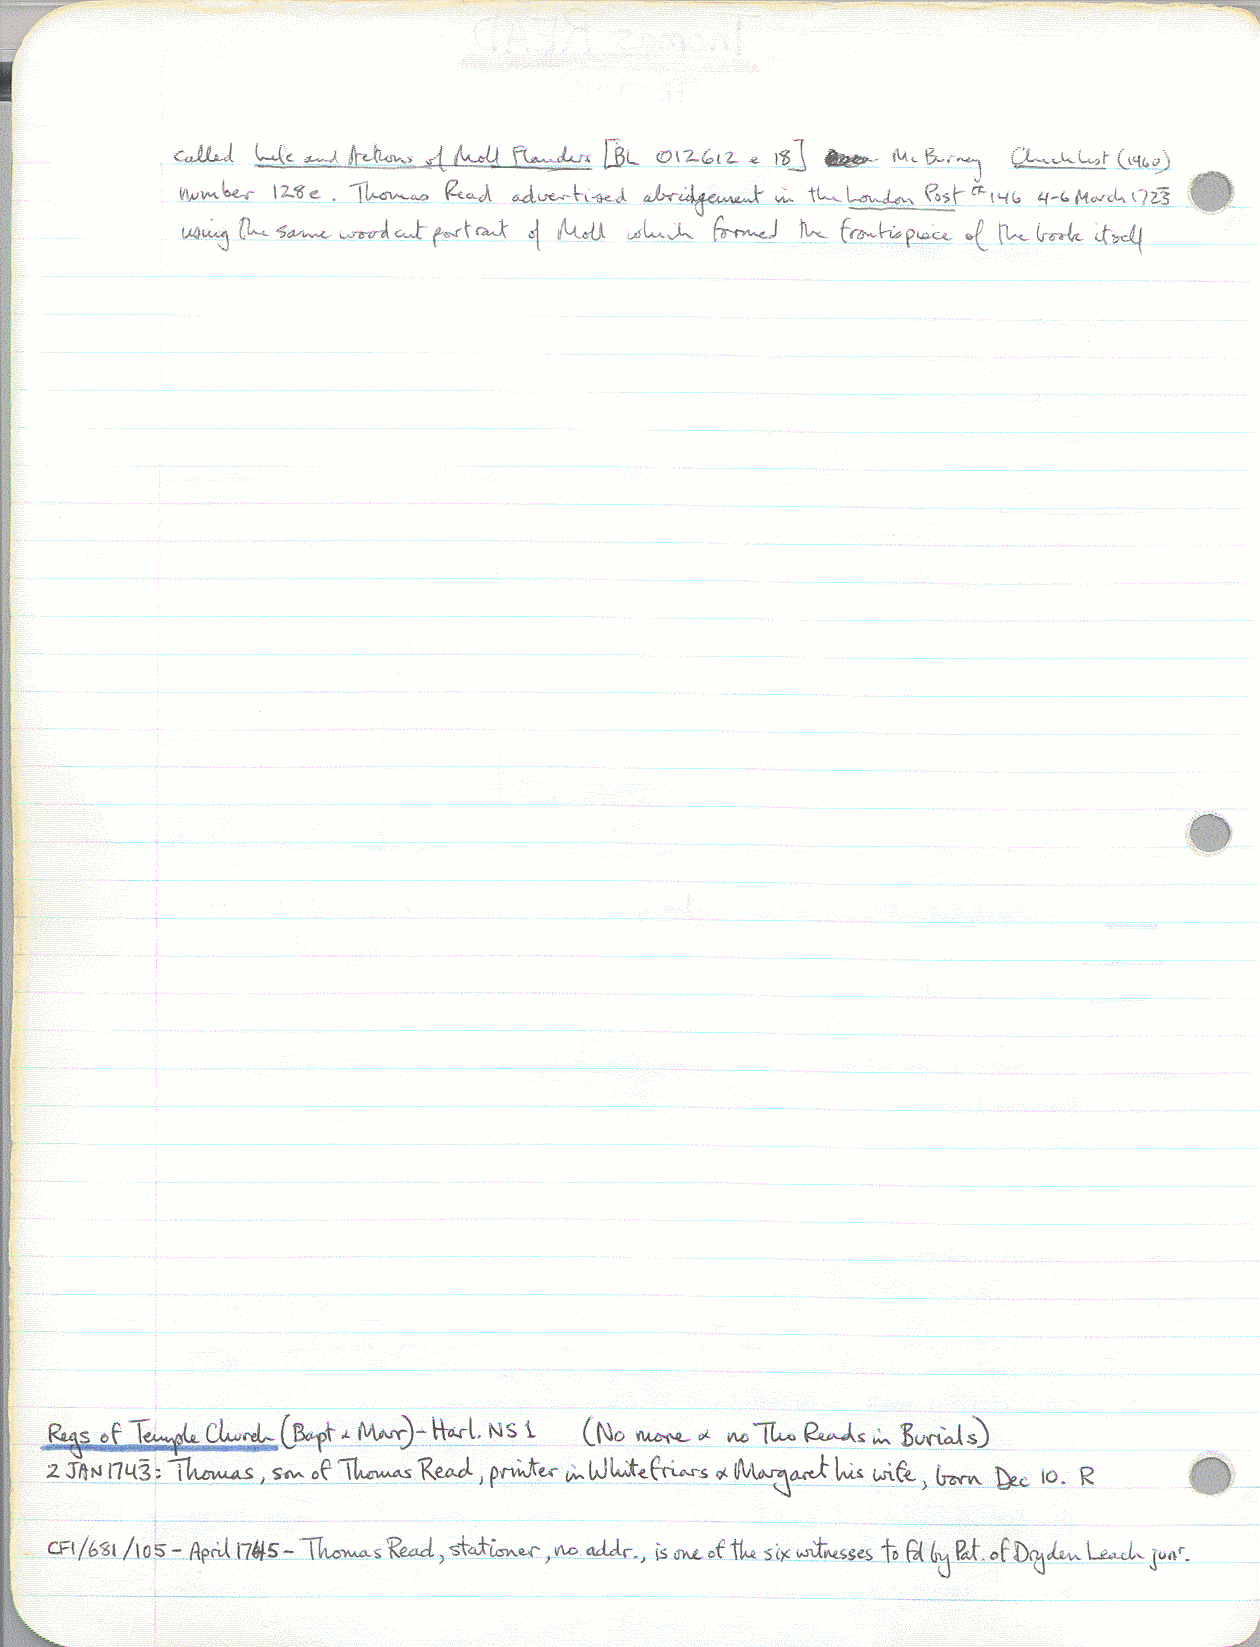 called Life and Actions of Moll Flanders [BL 012612 e 18] McBurney Check List (1960)
number 128e. Thomas Read advertised abridgement in the London Post # 146 4-6 March 1723
using the same woodcut portrait of Moll which formed the frontispiece of the book itself
Regs of Temple Church (Bapt & Marr) - Harl. NS 1 (No more & no Tho Reads in Burials)
2 JAN 1743: Thomas, son of Thomas Read, printer in Whitefriars & Margaret his wife, born Dec 10. R
CF1/681/105 - April 1745 - Thomas Read, stationer, no addr., is one of the six witnesses to fd by Pat. of Dryden Leach junr.